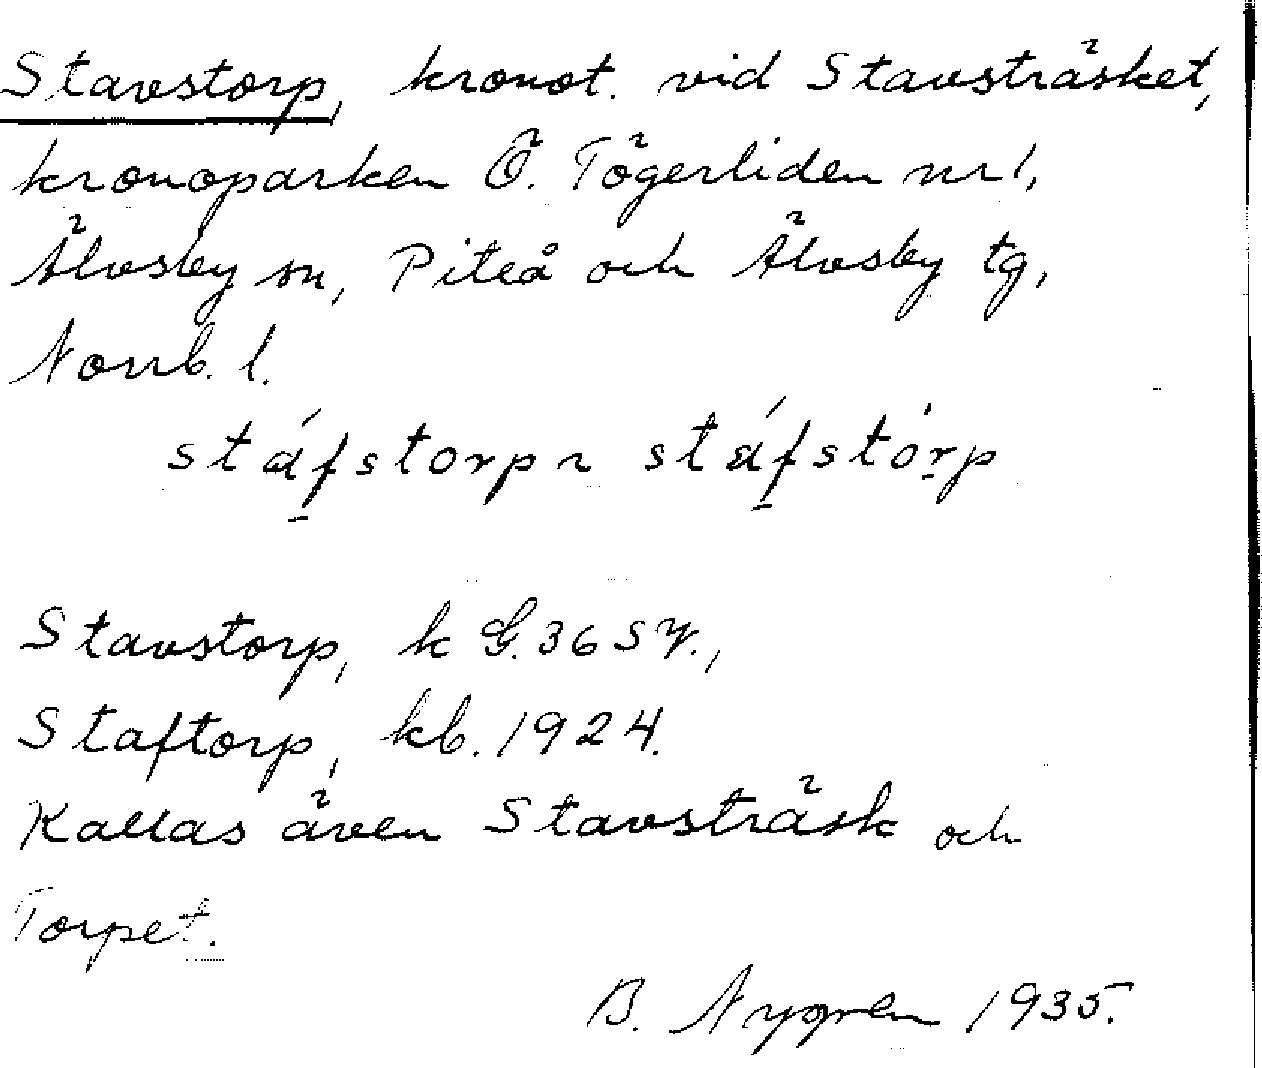 Stavstorp, kronot. vid Stavsträsket,
kronoparken Ö. Tögerliden nr 1,
Älvsby sn, Piteå och Älvsby tg,
Norrb. l.
stáfstorp ~ stáfstórp
Stavstorp, k G. 36 SV.,
Staftorp, kb. 1924.
Kallas även Stavsträsk och
Torpet.
B. Nygren 1935.